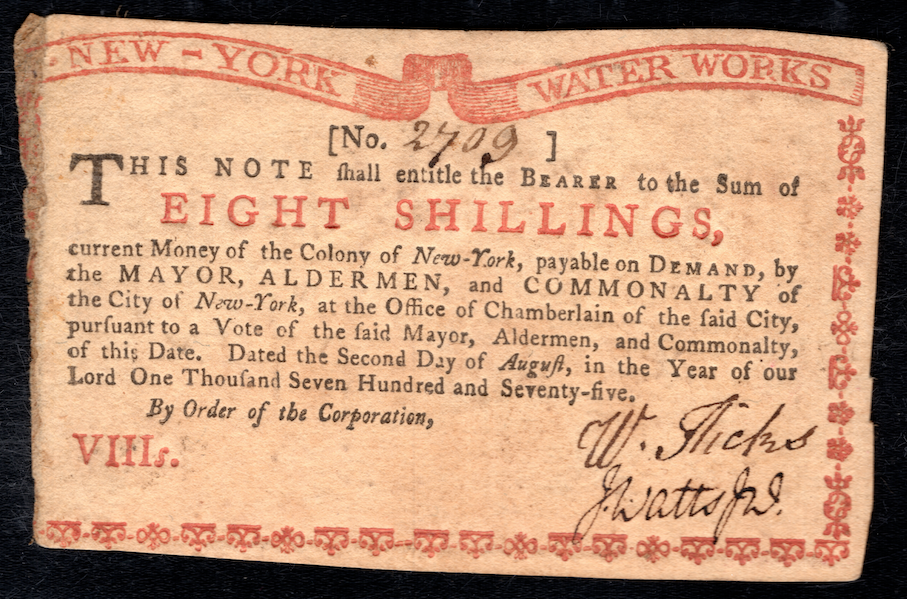 NEW-YORK WATER WORKS
[No. 2709 ]
THIS NOTE ſhall entitle the BEARER to the Sum of
EIGHT SHILLINGS,
current Money of the Colony of New-York, payable on DEMAND, by
the MAYOR, ALDERMEN, and COMMONALTY of
the City of New-York, at the Office of Chamberlain of the ſaid City,
purſuant to a Vote of the ſaid Mayor, Aldermen, and Commonalty,
of this Date. Dated the Second Day of Auguſt, in the Year of our
Lord One Thouſand Seven Hundred and Seventy-five.
By Order of the Corporation,
W. Hicks
VIIIs.
J. Watts Jr.